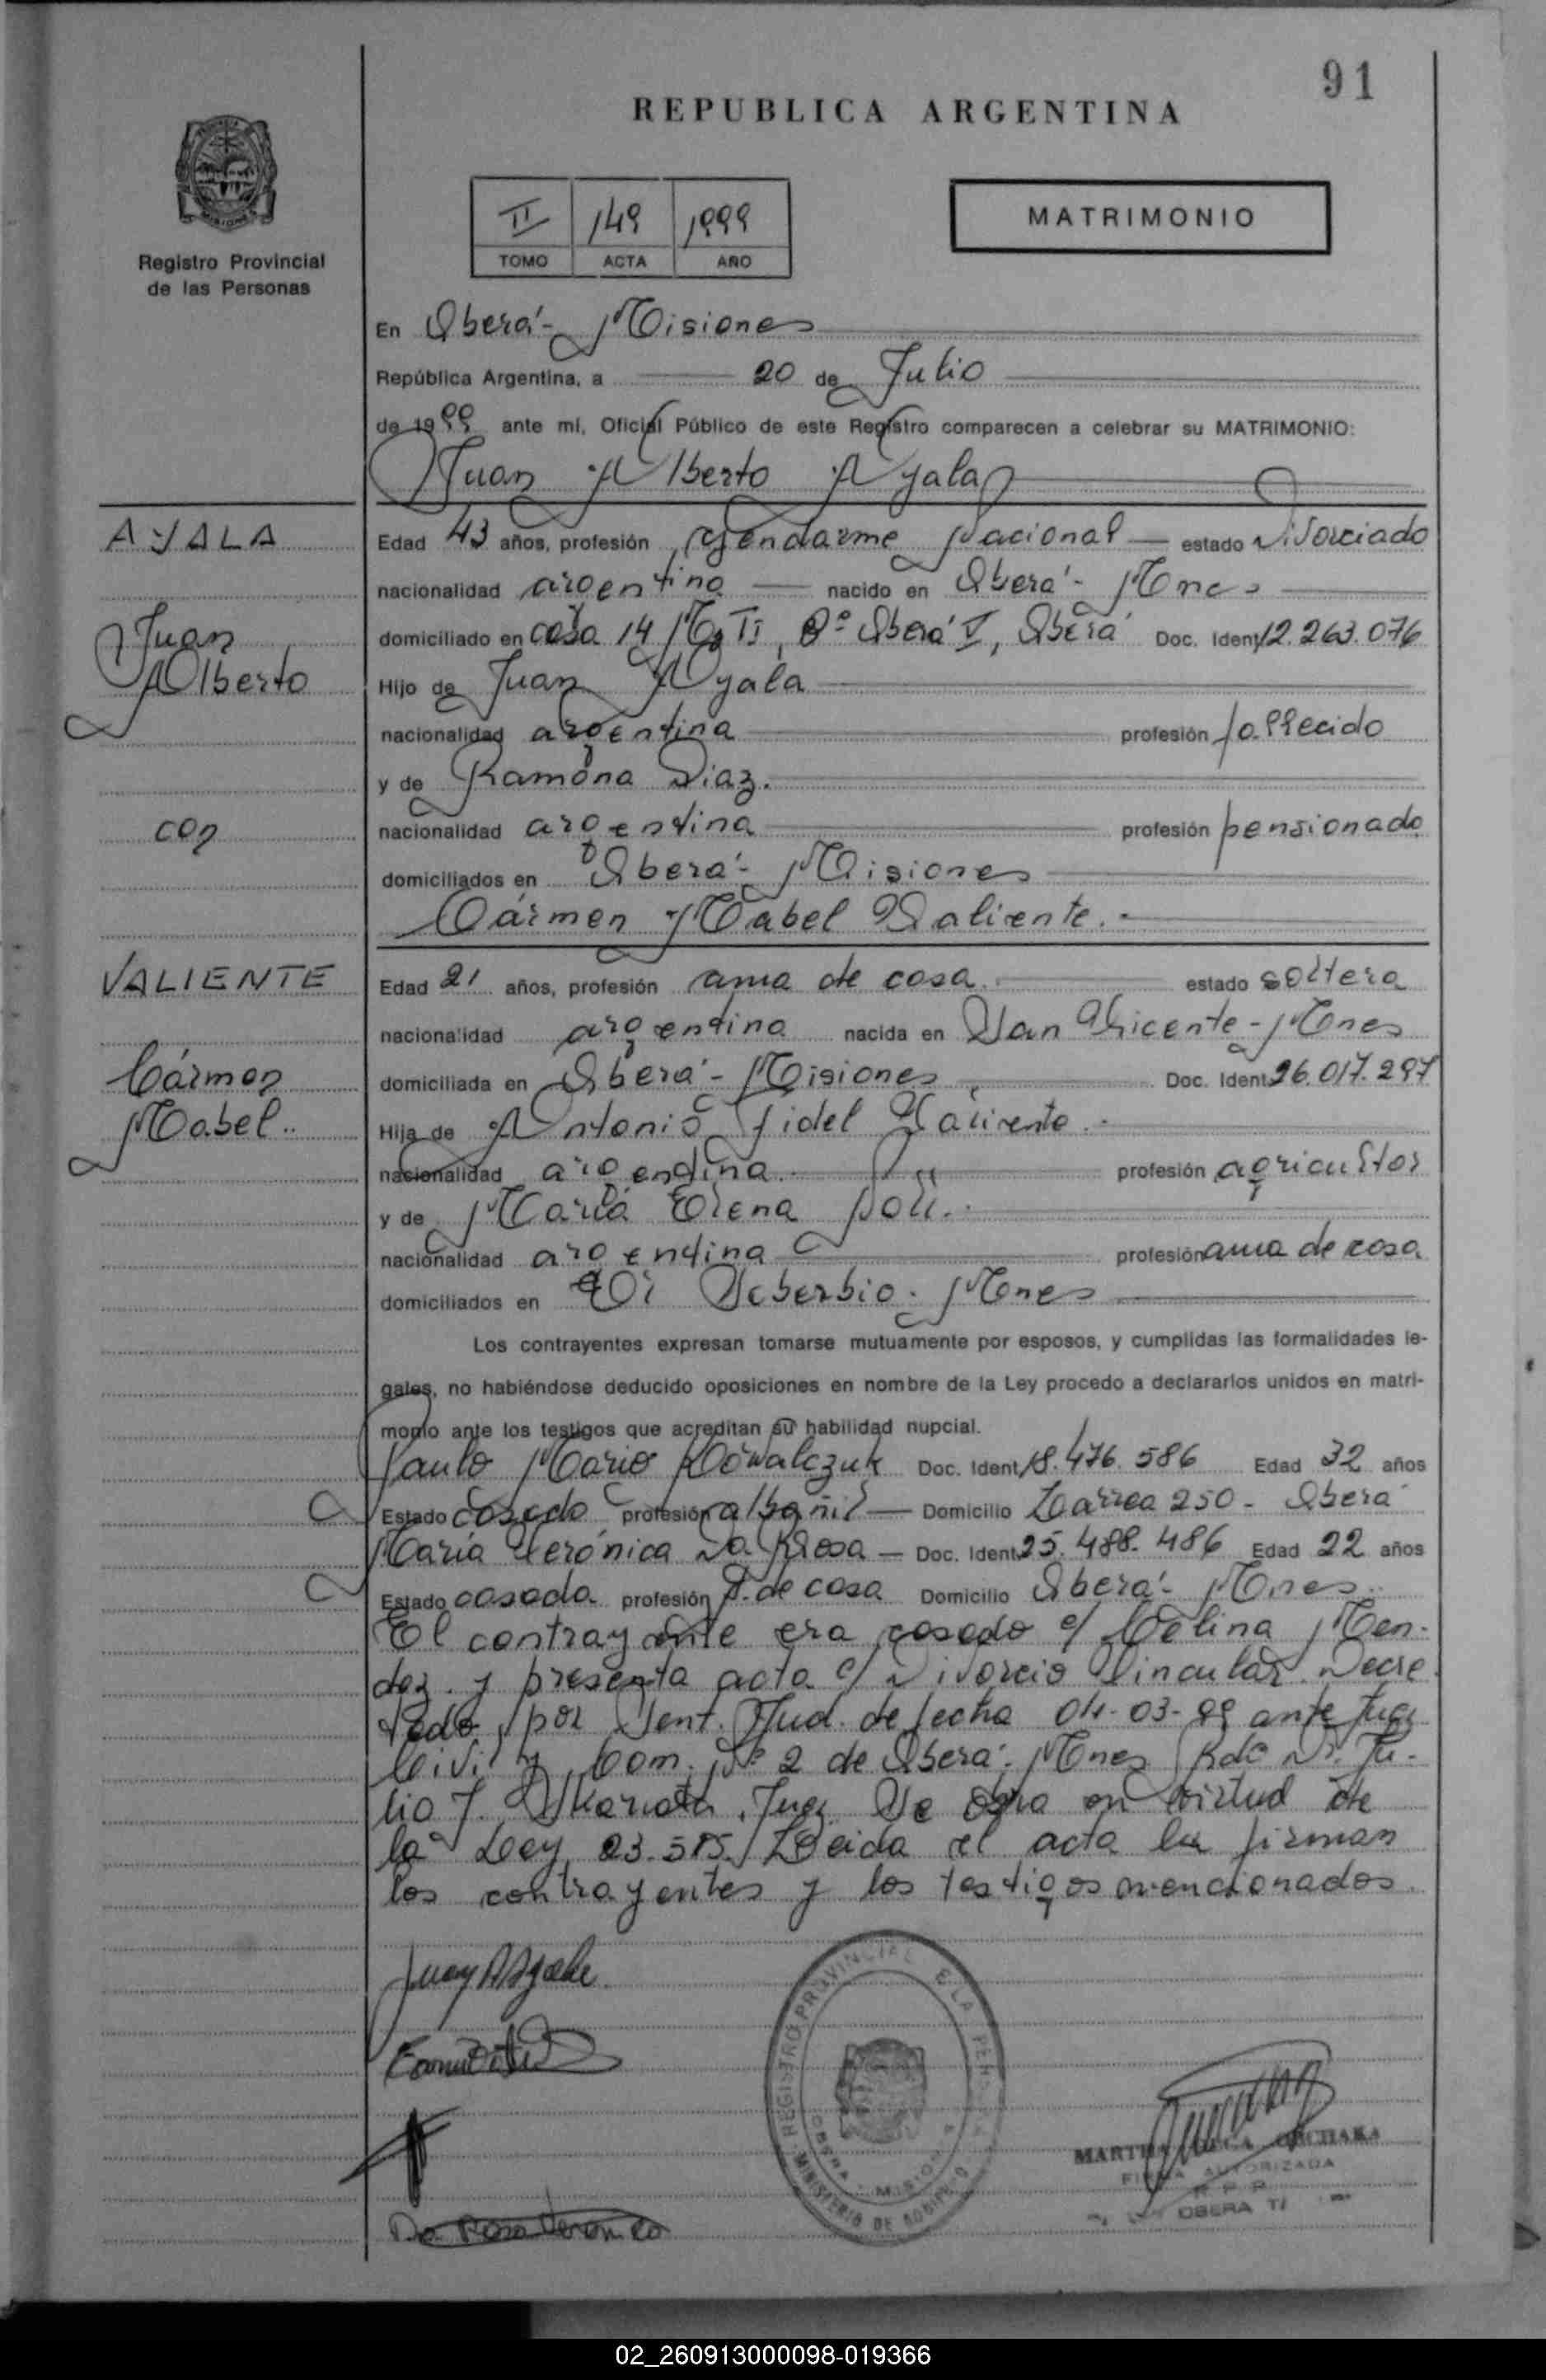 91
REPUBLICA ARGENTINA
Registro Provincial
de las Personas
II 149 1999
TOMO ACTA AÑO
MATRIMONIO
En Oberá - Misiones
República Argentina, a 20 de Julio
de 1999 ante mí, Oficial Público de este Registro comparecen a celebrar su MATRIMONIO:
Juan Alberto Ayala
AYALA
Juan
Alberto
con
VALIENTE
Cármen
Mabel
Edad 43 años, profesión Gendarme Nacional estado Divorciado
nacionalidad argentina nacido en Oberá - Mnes
domiciliado en casa 14 II, Bº Oberá V, Oberá Doc. Ident 12.263.076
Hijo de Juan Ayala
nacionalidad argentina profesión fallecido
y de Ramona Diaz.
nacionalidad argentina profesión pensionado
domiciliados en Oberá - Misiones
Cármen Mabel Valiente.-
Edad 21 años, profesión ama de casa estado soltera
nacionalidad argentina nacida en San Vicente - Mnes
domiciliada en Oberá - Misiones Doc. Ident 26.017.297
Hija de Antonio Fidel Valiente.-
nacionalidad argentina profesión agricultor
y de María Elena
nacionalidad argentina profesión ama de casa
domiciliados en El Soberbio. Mnes
Los contrayentes expresan tomarse mutuamente por esposos, y cumplidas las formalidades le-
gales, no habiéndose deducido oposiciones en nombre de la Ley procedo a declararlos unidos en matri-
monio ante los testigos que acreditan su habilidad nupcial.
Paulo Mario Kowalczuk Doc. Ident 18.476.586 Edad 32 años
Estado casado profesión albañil Domicilio Larrea 250 - Oberá
María Verónica Da Rosa Doc. Ident 25.488.486 Edad 22 años
Estado casada profesión A. de casa Domicilio Oberá - Mnes
El contrayente era casado c/ Celina Men-
dez y presenta acta c/ Divorcio Vincular. Decre
tado por Sent. Jud. de fecha 04-03-99 ante Juez
Civil y Com. Nº 2 de Oberá - Mnes Dr. Ju-
lio J. Juez. Se en virtud de
la Ley 23.515. Leida el acta la firman
los contrayentes y los testigos mencionados.
Juan A Ayala
REGISTRO PROVINCIAL DE LAS PERSONAS
OBERA - MISIONES
MINISTERIO DE GOBIERNO
FIRMA AUTORIZADA
R P P
OBERA
Da Rosa Veronica
02_260913000098-019366